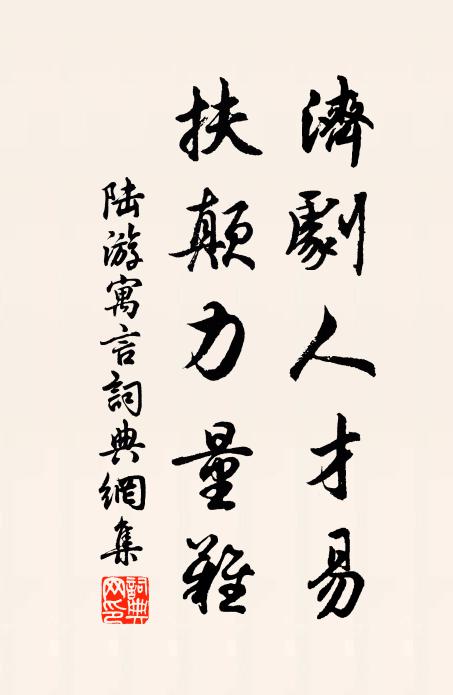 濟劇人才易
扶顛力量難
陆游寓言詞典網集
詞典網印